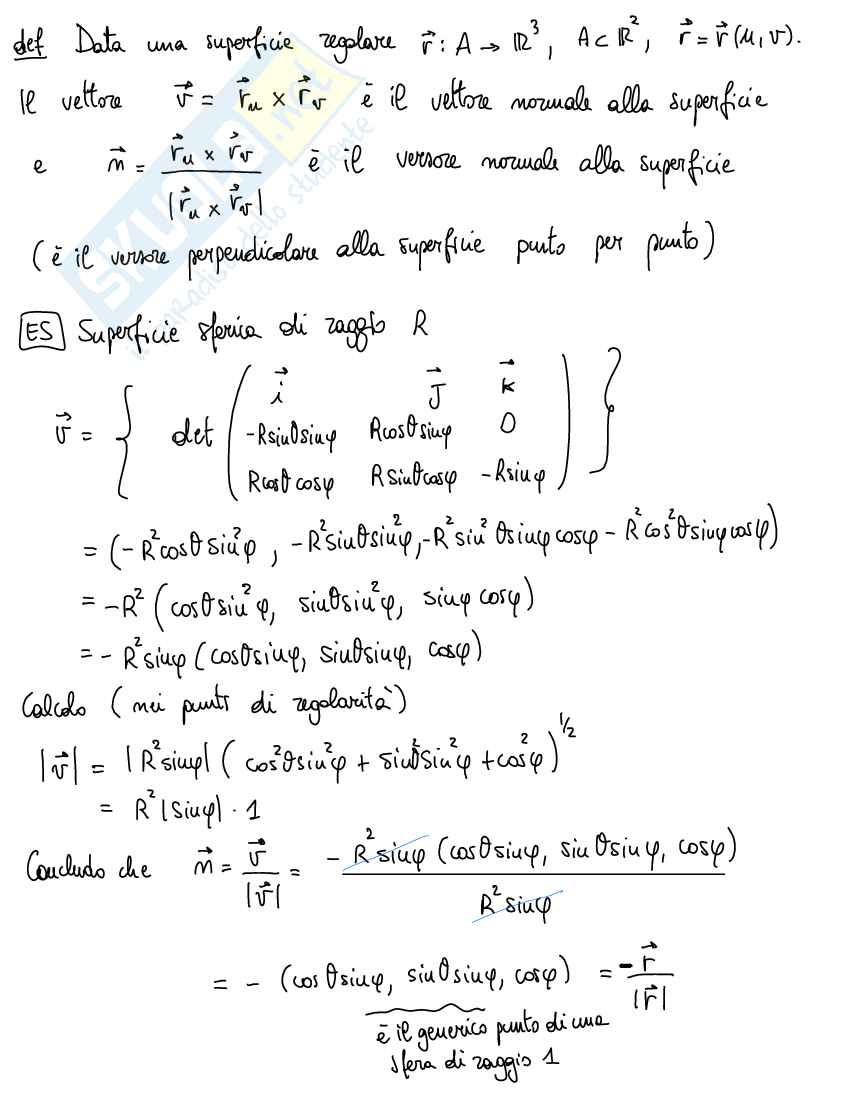 def Data una superficie regolare r⃗ : A → ℝ³, A ⊂ ℝ², r⃗ = r⃗(u, v).
Il vettore v⃗ = r⃗ᵤ × r⃗ᵥ è il vettore normale alla superficie
e n⃗ = (r⃗ᵤ × r⃗ᵥ) / |r⃗ᵤ × r⃗ᵥ| è il versore normale alla superficie
(è il versore perpendicolare alla superficie punto per punto)
ES Superficie sferica di raggio R
v⃗ = { det ( i⃗ J⃗ k⃗
-Rsinθsinφ Rcosθsinφ 0
Rcosθcosφ Rsinθcosφ -Rsinφ ) }
= (-R²cosθsin²φ, -R²sinθsin²φ, -R²sin²θsinφcosφ - R²cos²θsinφcosφ)
= -R² (cosθsin²φ, sinθsin²φ, sinφcosφ)
= - R²sinφ (cosθsinφ, sinθsinφ, cosφ)
Calcolo (nei punti di regolarità)
|v⃗| = |R²sinφ| (cos²θsin²φ + sin²θsin²φ + cos²φ)^1/2
= R²|sinφ| · 1
Concludo che n⃗ = v⃗ / |v⃗| = - R²sinφ (cosθsinφ, sinθsinφ, cosφ) / R²sinφ
= - (cosθsinφ, sinθsinφ, cosφ) = -r⃗ / |r⃗|
è il generico punto di una
sfera di raggio 1
SKUOLA.net